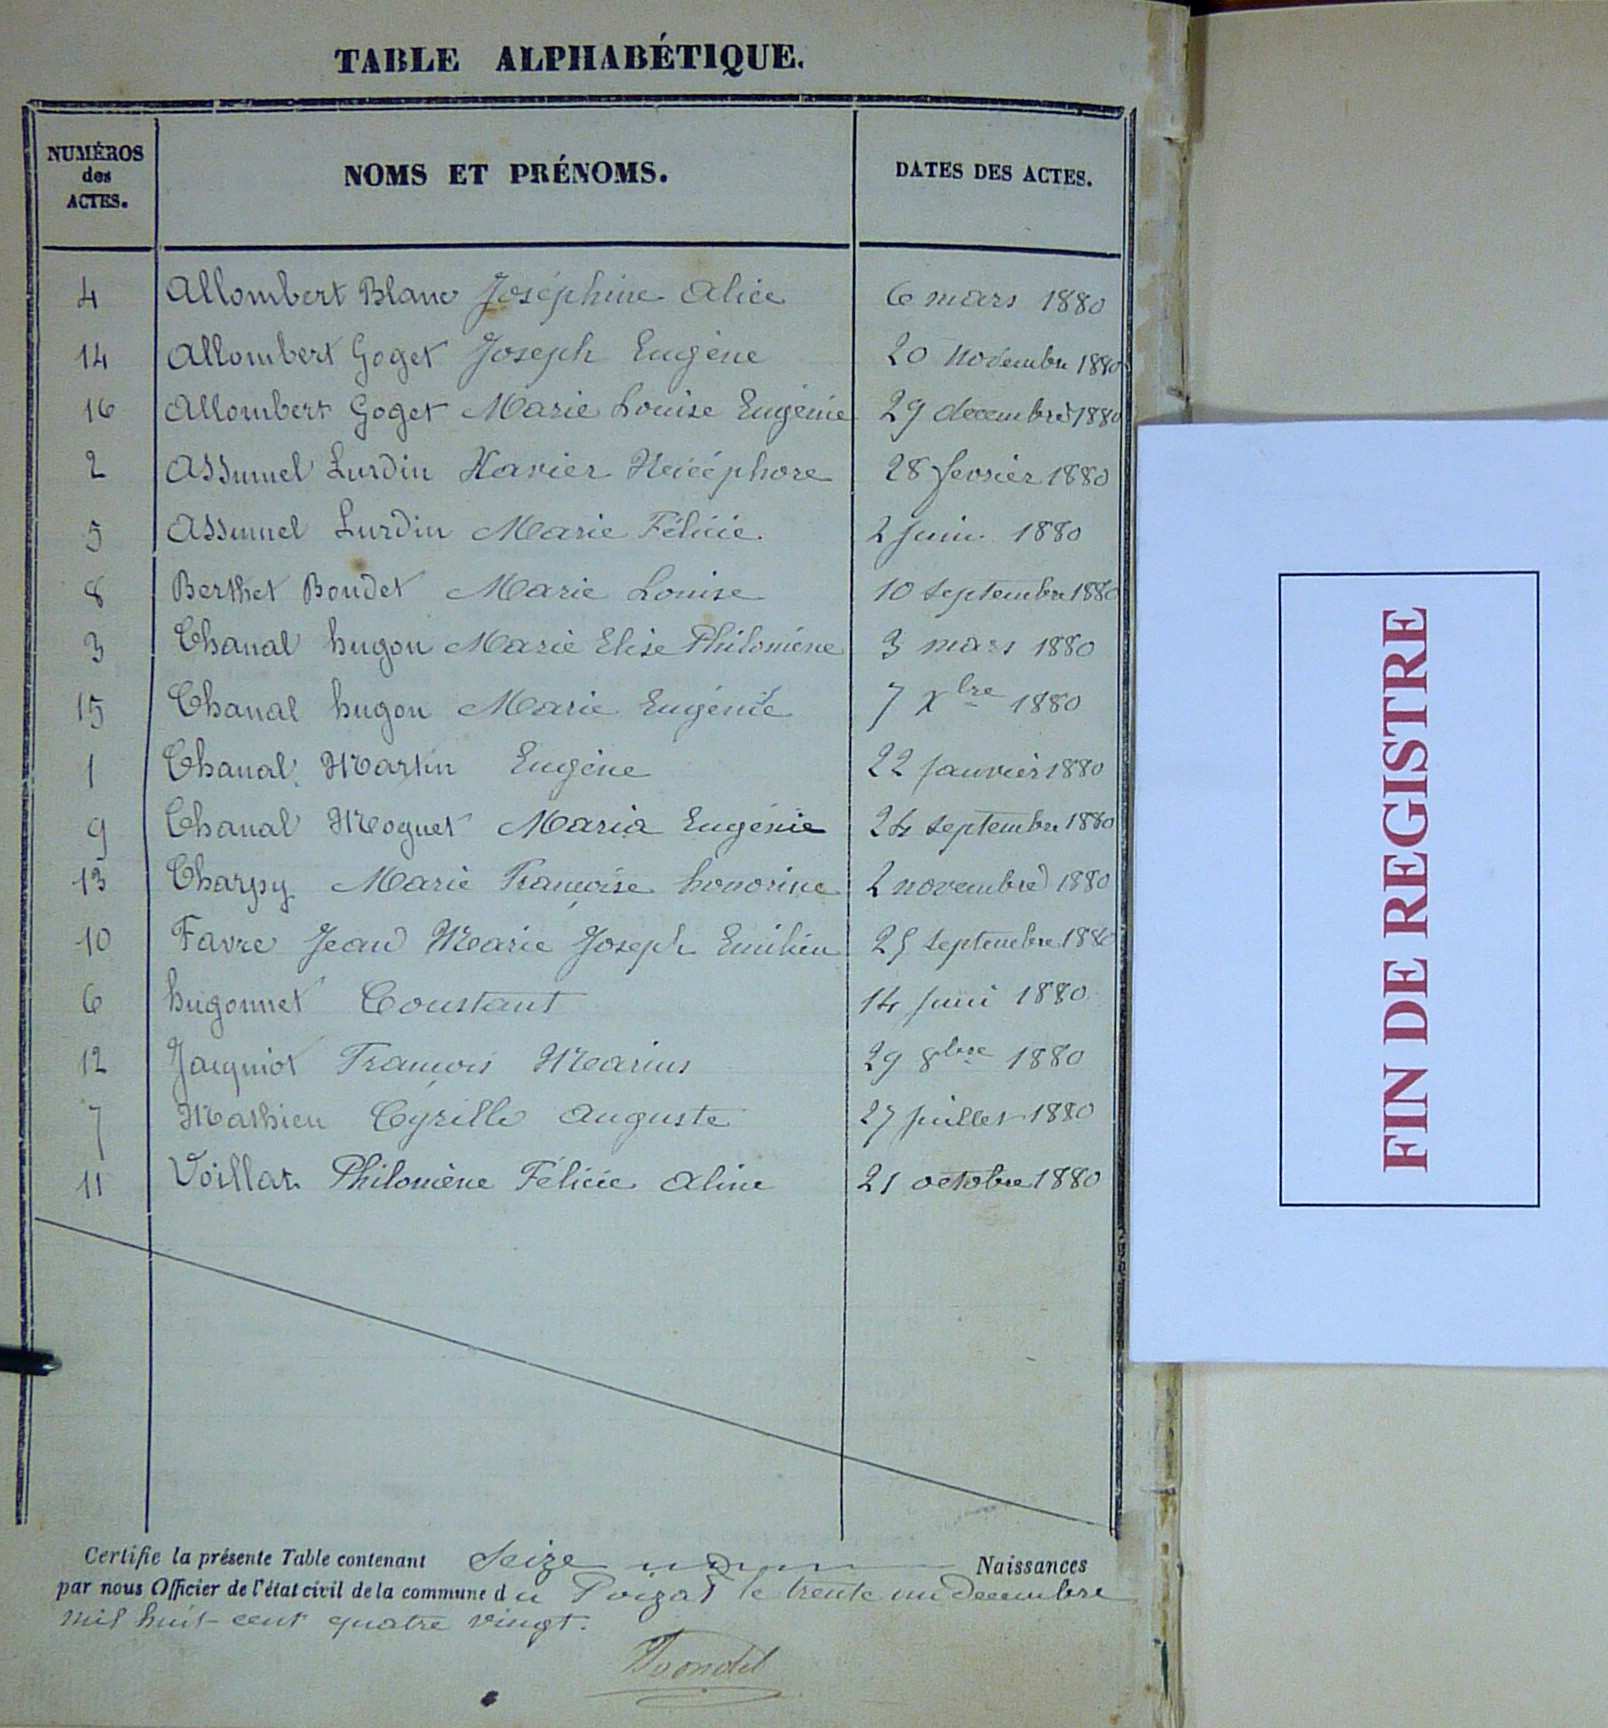 TABLE ALPHABÉTIQUE.
NUMÉROS des ACTES. NOMS ET PRÉNOMS. DATES DES ACTES.
4 Allombert Blanc Joséphine Alice 6 mars 1880
14 Allombert Goget Joseph Eugène 20 novembre 1880
16 Allombert Goget Marie Louise Eugénie 29 decembre 1880
2 Assumel Lurdin Xavier Nicéphore 28 fevrier 1880
5 Assumel Lurdin Marie Félicie. 2 Juin 1880
8 Berthet Bondet Marie Louise 10 septembre 1880
3 Chanal hugon Marie Elise Philomène 3 mars 1880
15 Chanal hugon Marie Eugénie 7 Xbre 1880
1 Chanal Martin Eugène 22 Janvier 1880
9 Chanal Moguet Maria Eugénie 24 septembre 1880
13 Charpy Marie Françoise honorine 2 novembre 1880
10 Favre Jean Marie Joseph Emilien 25 septembre 1880
6 hugonnet Constant 14 Juin 1880
12 Jacquiot François Marius 29 8bre 1880
7 Mathieu Cyrille Auguste 27 Juillet 1880
11 Voillat Philomène Félicie Aline 21 octobre 1880
Certifie la présente Table contenant Seize Naissances
par nous Officier de l'état civil de la commune du Poizat le trente un Decembre
mil huit cent quatre vingt.
FIN DE REGISTRE